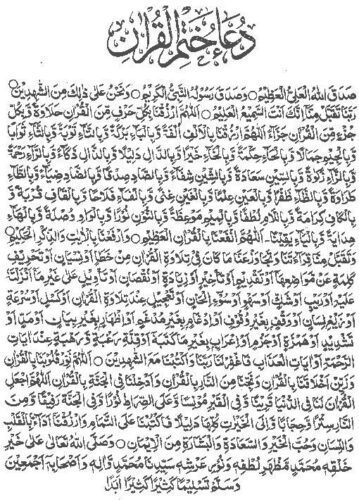 دُعَاءُ خَتْمِ الْقُرْاٰنِ
صَدَقَ اللهُ الْعَلِيُّ الْعَظِيْمُ ○ وَصَدَقَ رَسُوْلُهُ النَّبِيُّ الْكَرِيْمُ ○ وَنَحْنُ عَلٰى ذٰلِكَ مِنَ الشّٰهِدِيْنَ ○
رَبَّنَا تَقَبَّلْ مِنَّا اِنَّكَ اَنْتَ السَّمِيْعُ الْعَلِيْمُ ○ اَللّٰهُمَّ ارْزُقْنَا بِكُلِّ حَرْفٍ مِّنَ الْقُرْاٰنِ حَلَاوَةً وَّبِكُلِّ
جُزْءٍ مِّنَ الْقُرْاٰنِ جَزَآءً اَللّٰهُمَّ ارْزُقْنَا بِالْاَلِفِ اُلْفَةً وَّبِالْبَآءِ بَرَكَةً وَّبِالتَّآءِ تَوْبَةً وَّبِالثَّآءِ ثَوَابًا
وَّبِالْجِيْمِ جَمَالًا وَّبِالْحَآءِ حِكْمَةً وَّبِالْخَآءِ خَيْرًا وَّبِالدَّالِ دَلِيْلًا وَّبِالذَّالِ ذَكَآءً وَّبِالرَّآءِ رَحْمَةً
وَّبِالزَّآءِ زَكٰوةً وَّبِالسِّيْنِ سَعَادَةً وَّبِالشِّيْنِ شِفَآءً وَّبِالصَّادِ صِدْقًا وَّبِالضَّادِ ضِيَآءً وَّبِالطَّآءِ
طَرَاوَةً وَّبِالظَّآءِ ظَفَرًا وَّبِالْعَيْنِ عِلْمًا وَّبِالْغَيْنِ غِنًى وَّبِالْفَآءِ فَلَاحًا وَّبِالْقَافِ قُرْبَةً وَّ
بِالْكَافِ كَرَامَةً وَّبِاللَّامِ لُطْفًا وَّبِالْمِيْمِ مَوْعِظَةً وَّبِالنُّوْنِ نُوْرًا وَّبِالْوَاوِ وُصْلَةً وَّبِالْهَآءِ
هِدَايَةً وَّبِالْيَآءِ يَقِيْنًا ○ اَللّٰهُمَّ انْفَعْنَا بِالْقُرْاٰنِ الْعَظِيْمِ ○ وَارْفَعْنَا بِالْاٰيٰتِ وَالذِّكْرِ الْحَكِيْمِ ○
وَتَقَبَّلْ مِنَّا قِرَآءَتَنَا وَتَجَاوَزْ عَنَّا مَا كَانَ فِيْ تِلَاوَةِ الْقُرْاٰنِ مِنْ خَطَاٍ اَوْ نِسْيَانٍ اَوْ تَحْرِيْفِ
كَلِمَةٍ عَنْ مَّوَاضِعِهَا اَوْ تَقْدِيْمٍ اَوْ تَاْخِيْرٍ اَوْ زِيَادَةٍ اَوْ نُقْصَانٍ اَوْ تَاْوِيْلٍ عَلٰى غَيْرِ مَا اَنْزَلْتَهٗ
عَلَيْهِ اَوْ رَيْبٍ اَوْ شَكٍّ اَوْ سَهْوٍ اَوْ سُوْٓءِ اِلْحَانٍ اَوْ تَعْجِيْلٍ عِنْدَ تِلَاوَةِ الْقُرْاٰنِ اَوْ كَسَلٍ اَوْ سُرْعَةٍ
اَوْ زَيْغِ لِسَانٍ اَوْ وَقْفٍ بِغَيْرِ وُقُوْفٍ اَوْ اِدْغَامٍ بِغَيْرِ مُدْغَمٍ اَوْ اِظْهَارٍ بِغَيْرِ بَيَانٍ اَوْ مَدٍّ اَوْ
تَشْدِيْدٍ اَوْ هَمْزَةٍ اَوْ جَزْمٍ اَوْ اِعْرَابٍ بِغَيْرِ مَا كَتَبَهٗ اَوْ قِلَّةِ رَغْبَةٍ وَّرَهْبَةٍ عِنْدَ اٰيَاتِ
الرَّحْمَةِ وَاٰيَاتِ الْعَذَابِ فَاغْفِرْ لَنَا رَبَّنَا وَاكْتُبْنَا مَعَ الشّٰهِدِيْنَ ○ اَللّٰهُمَّ نَوِّرْ قُلُوْبَنَا بِالْقُرْاٰنِ
وَزَيِّنْ اَخْلَاقَنَا بِالْقُرْاٰنِ وَنَجِّنَا مِنَ النَّارِ بِالْقُرْاٰنِ وَاَدْخِلْنَا فِي الْجَنَّةِ بِالْقُرْاٰنِ اَللّٰهُمَّ اجْعَلِ
الْقُرْاٰنَ لَنَا فِي الدُّنْيَا قَرِيْنًا وَّفِي الْقَبْرِ مُوْنِسًا وَّعَلَى الصِّرَاطِ نُوْرًا وَّفِي الْجَنَّةِ رَفِيْقًا وَّمِنَ
النَّارِ سِتْرًا وَّحِجَابًا وَّاِلَى الْخَيْرَاتِ كُلِّهَا دَلِيْلًا فَاكْتُبْنَا عَلَى التَّمَامِ وَارْزُقْنَا اَدَآءً بِالْقَلْبِ
وَاللِّسَانِ وَحُبِّ الْخَيْرِ وَالسَّعَادَةِ وَالْبِشَارَةِ مِنَ الْاِيْمَانِ ○ وَصَلَّى اللهُ تَعَالٰى عَلٰى خَيْرِ
خَلْقِهٖ مُحَمَّدٍ مَّظْهَرِ لُطْفِهٖ وَنُوْرِ عَرْشِهٖ سَيِّدِنَا مُحَمَّدٍ وَّاٰلِهٖ وَاَصْحَابِهٖٓ اَجْمَعِيْنَ
وَسَلَّمَ تَسْلِيْمًا كَثِيْرًا كَثِيْرًا